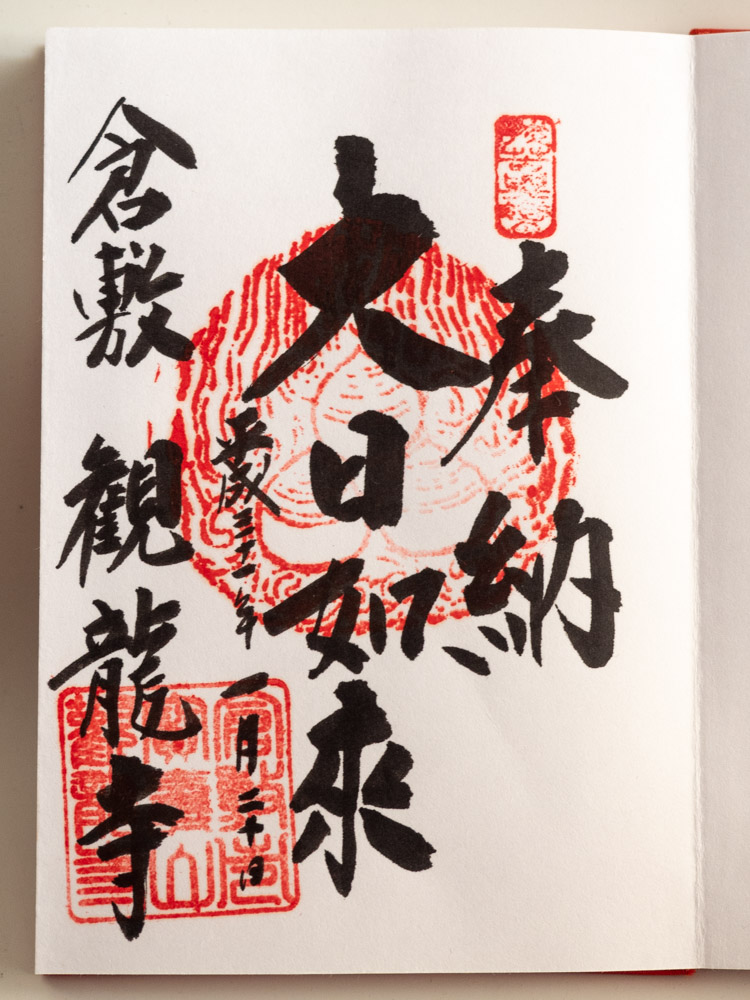 奉納
大日如來
平成三十一年
一月二十日
倉敷
観龍寺